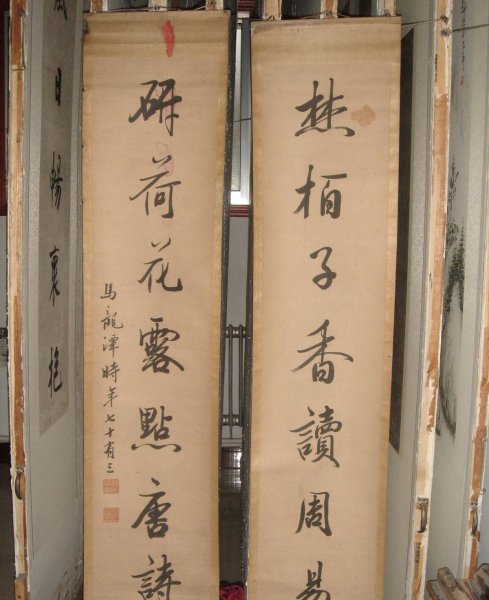 焚柏子香讀周易
研荷花露點唐詩
馬龍潭時年七十有三
風日暢襄抱